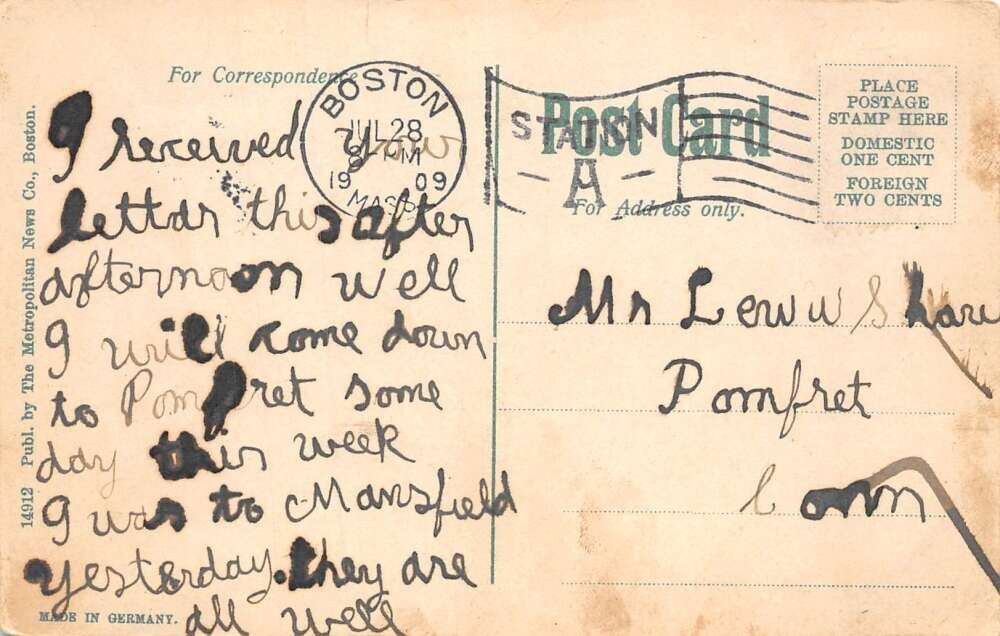 For Correspondence
BOSTON
JUL 28
8 - PM
19 09
MASS.
STATION
- A -
Post Card
For Address only.
PLACE
POSTAGE
STAMP HERE
DOMESTIC
ONE CENT
FOREIGN
TWO CENTS
14912 Publ. by The Metropolitan News Co., Boston.
I received your
lettar this after
afternoon well
I will come down
to Pomfret some
day this week
I was to Mansfield
yesterday. they are
all well
MADE IN GERMANY.
Mr
Pomfret
Conn